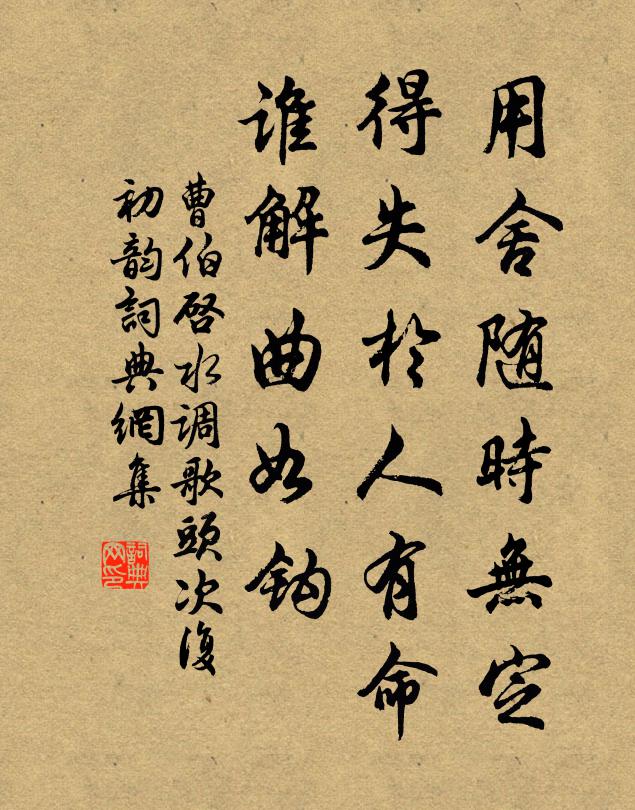 用舍随時無定
得失於人有命
谁解曲如钩
曹伯啓水调歌頭次復
初韵詞典網集
詞典网印